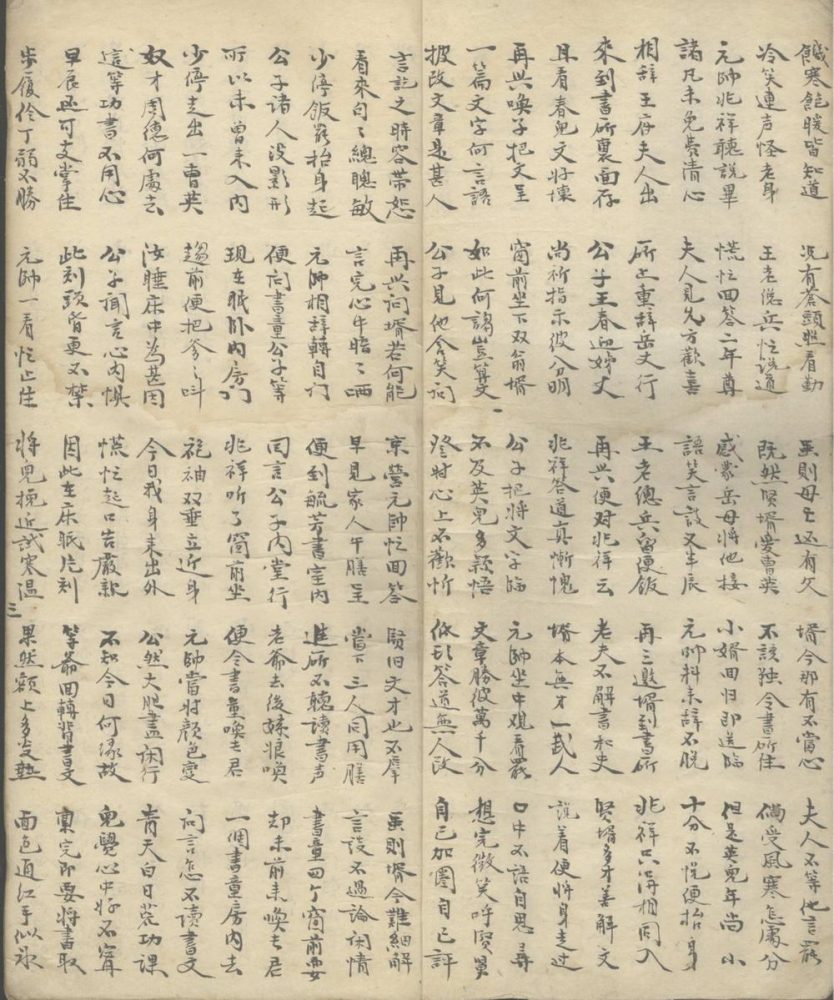 饑寒飽暖皆知道　況有蒼頭照看勤　虽則母亡还有父　壻今那有不當心　夫人不等他言罷
冷笑連声怪老身　王老總兵忙說道　既然賢壻愛曹英　不該独令書所住　倘受風寒怎處分
元帥兆祥聽說畢　慌忙回答二年尊　感蒙岳母將他接　小婿回归即送臨　但是英兒年尚小
諸凡未免費清心　夫人見允方歡喜　語笑言談又半辰　元帅料来辞不脱　十分不悦便抬身
相辞王府夫人出　所上重辞岳丈行　王老總兵留便飯　再三邀壻到書所　兆祥只得相同入
來到書所裏面存　公子王春迎姊丈　再共便对兆祥云　老夫不解書和史　賢壻多才善解文
且看春兒文好壞　尚祈指示彼分明　兆祥答道真慚愧　壻本無才一武人　説着便將身走过
再共喚子把文呈　窗前坐下双翁壻　公子把將文字臨　元帥坐中观看罷　口中不語自思尋
一篇文字何言語　如此何謅豈算文　不及英兒多穎悟　文章勝彼萬千分　想完微笑呼賢舅
披改文章是甚人　公子見他含笑问　登时心上不歡忻　低頭答道無人改　自己加圈自己評
言訖之時容帶怒　再共问壻若何能　京營元帥忙回答　賢旧文才也不厚　虽則壻今難細解
看來句〻總聰敏　言完心中暗〻哂　早見家人午膳呈　當下三人同用膳　言談不過論闲情
少停飯罷抬身起　元帥相辞轉自门　便到毓芳書室内　進所不聽讀書声　書童四个窗前耍
公子諸人没影形　便问書童公子等　回言公子内堂行　老爺去後　喚　却未前来喚去君
所以未曾来入内　現在眠卧内房门　兆祥听了窗前坐　便令書童喚去君　一個書童房内去
少停走出一曹英　趨前便把爹〻叫　袍袖双垂立近身　元帥當时顔色變　问言怎不讀書文
奴才周德何處去　汝睡床中為甚因　今日我身未出外　公然大胆盡闲行　青天白日荒功課
這等功書不用心　公子闻言心内惧　慌忙起口告嚴親　不知今日何緣故　兒覺心中好不寗
早辰还可支掌住　此刻頭昏更不禁　因此在床眠片刻　等爺回轉背書文　稟完即要將書取
步履伶丁弱不勝　元帥一看忙止住　將兒挽近試寒温　果然額上多发熱　面色通红手似氷
三